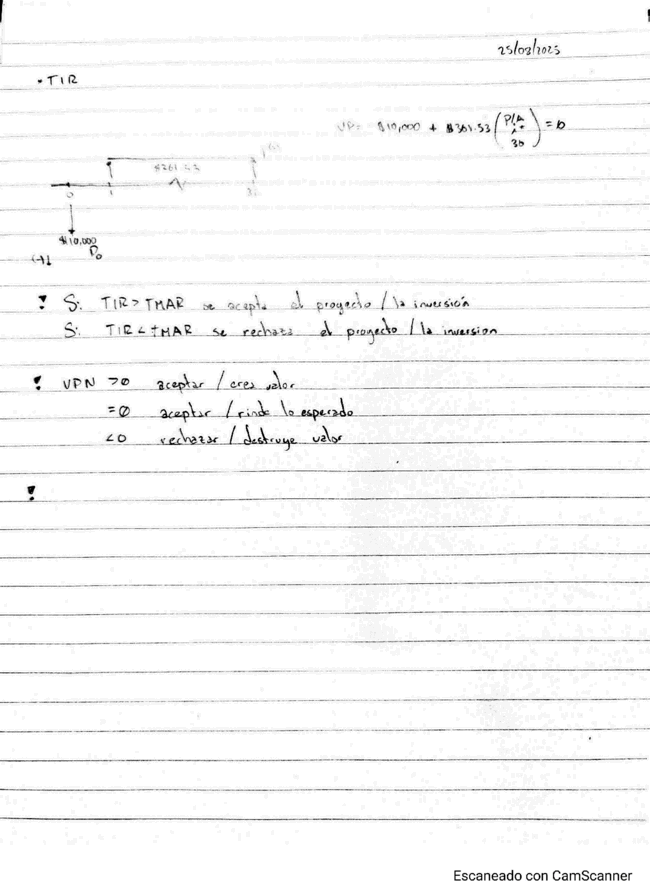 25/03/2025
• TIR
VP= $10,000 + $361.53 (P/A i* 36) = 0
$361.53
0 1 36
$10,000
P₀
(+)↓
! Si TIR > TMAR se acepta el proyecto / la inversión
Si TIR < TMAR se rechaza el proyecto / la inversion
! VPN >0 aceptar / crea valor
=0 aceptar / rinde lo esperado
<0 rechazar / destruye valor
!
Escaneado con CamScanner